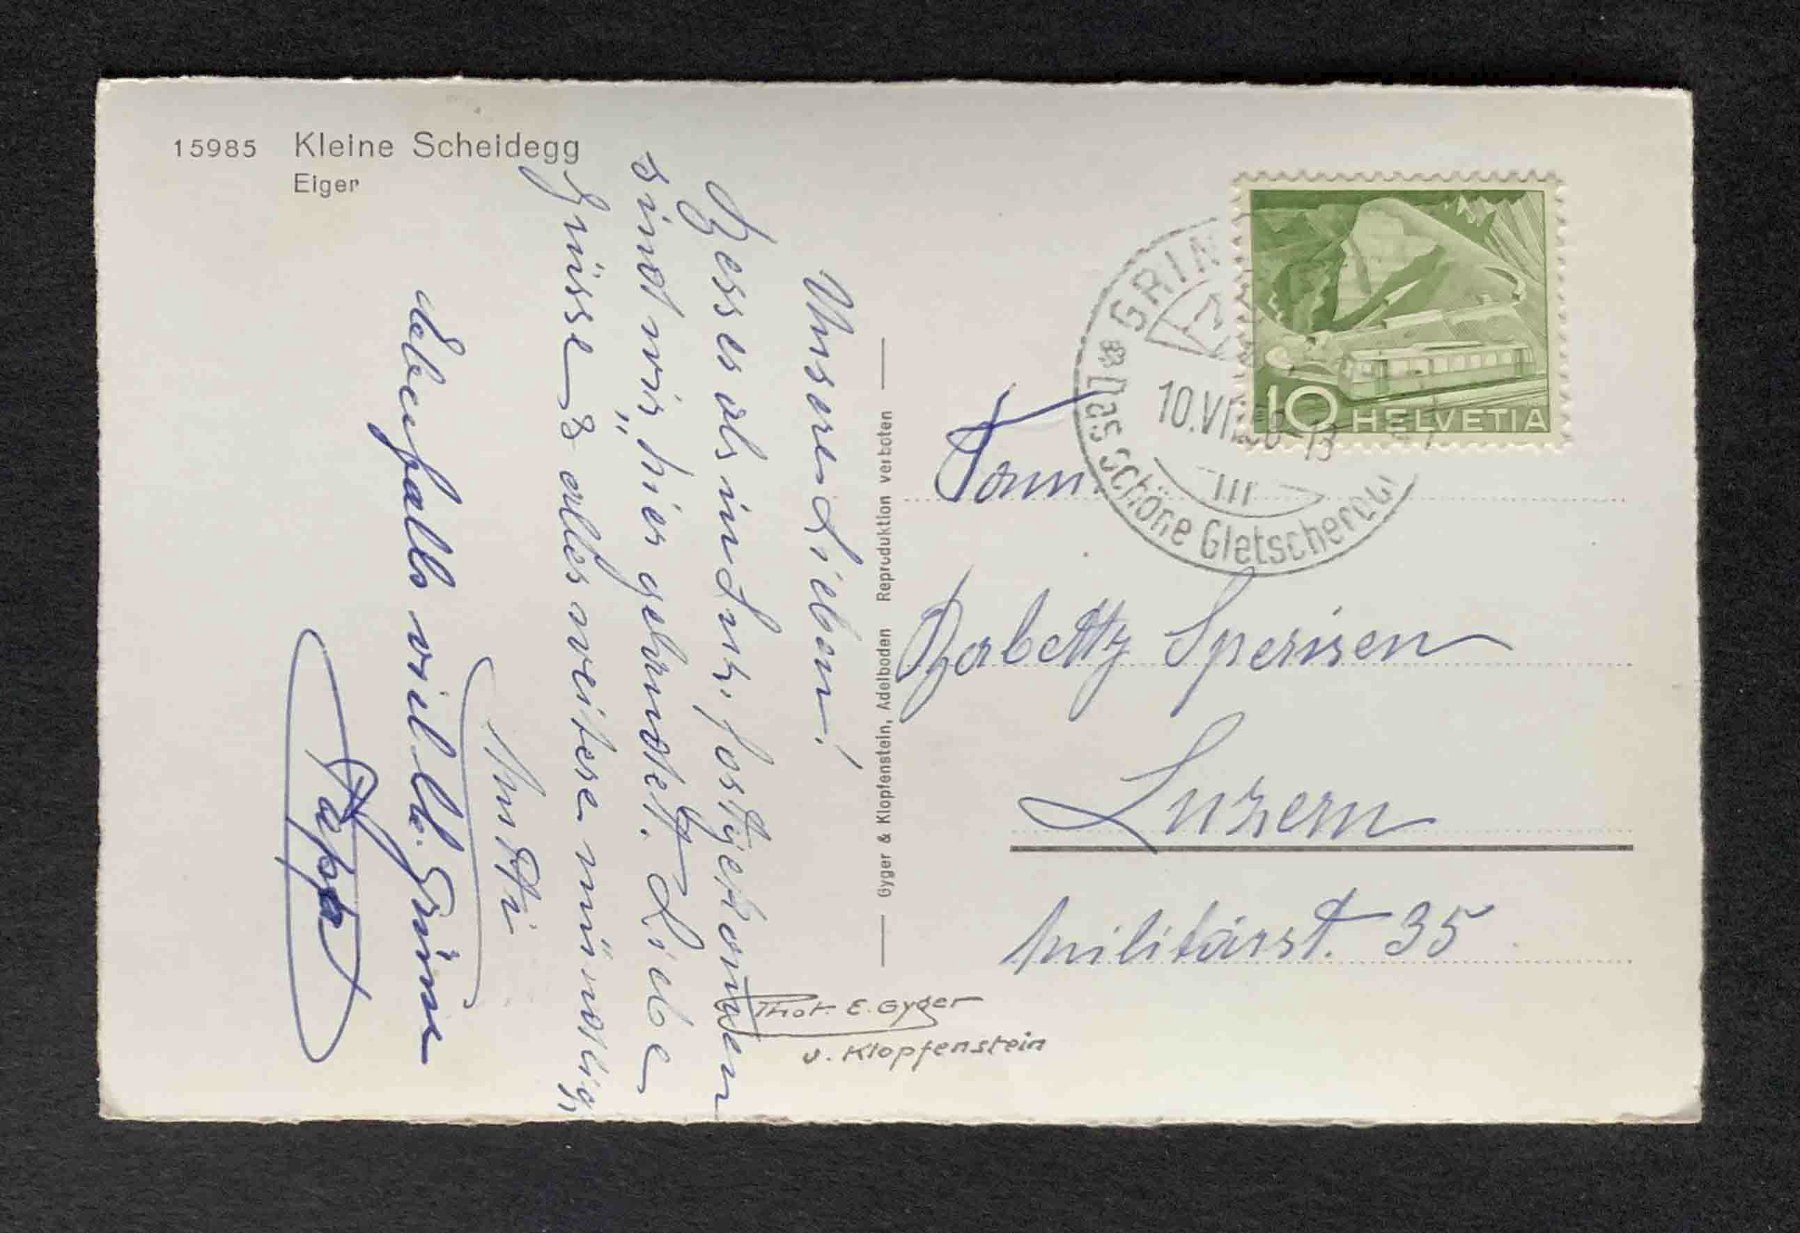 15985 Kleine Scheidegg
Eiger
Unsere Lieben!
Besser als in Luz. fortgekommen
sind wir, hier gelandet. Liebe
Grüsse & alles weitere mündlig,
Mutti
ebenfalls viel lb. Grüsse
Pappa
Gyger & Klopfenstein, Adelboden Reproduktion verboten
Phot. E. Gyger
u. Klopfenstein
GRIN
10.VII
13
Das schöne Gletscherdorf
10 HELVETIA
Fam.
Sperisen
Luzern
Militärst. 35